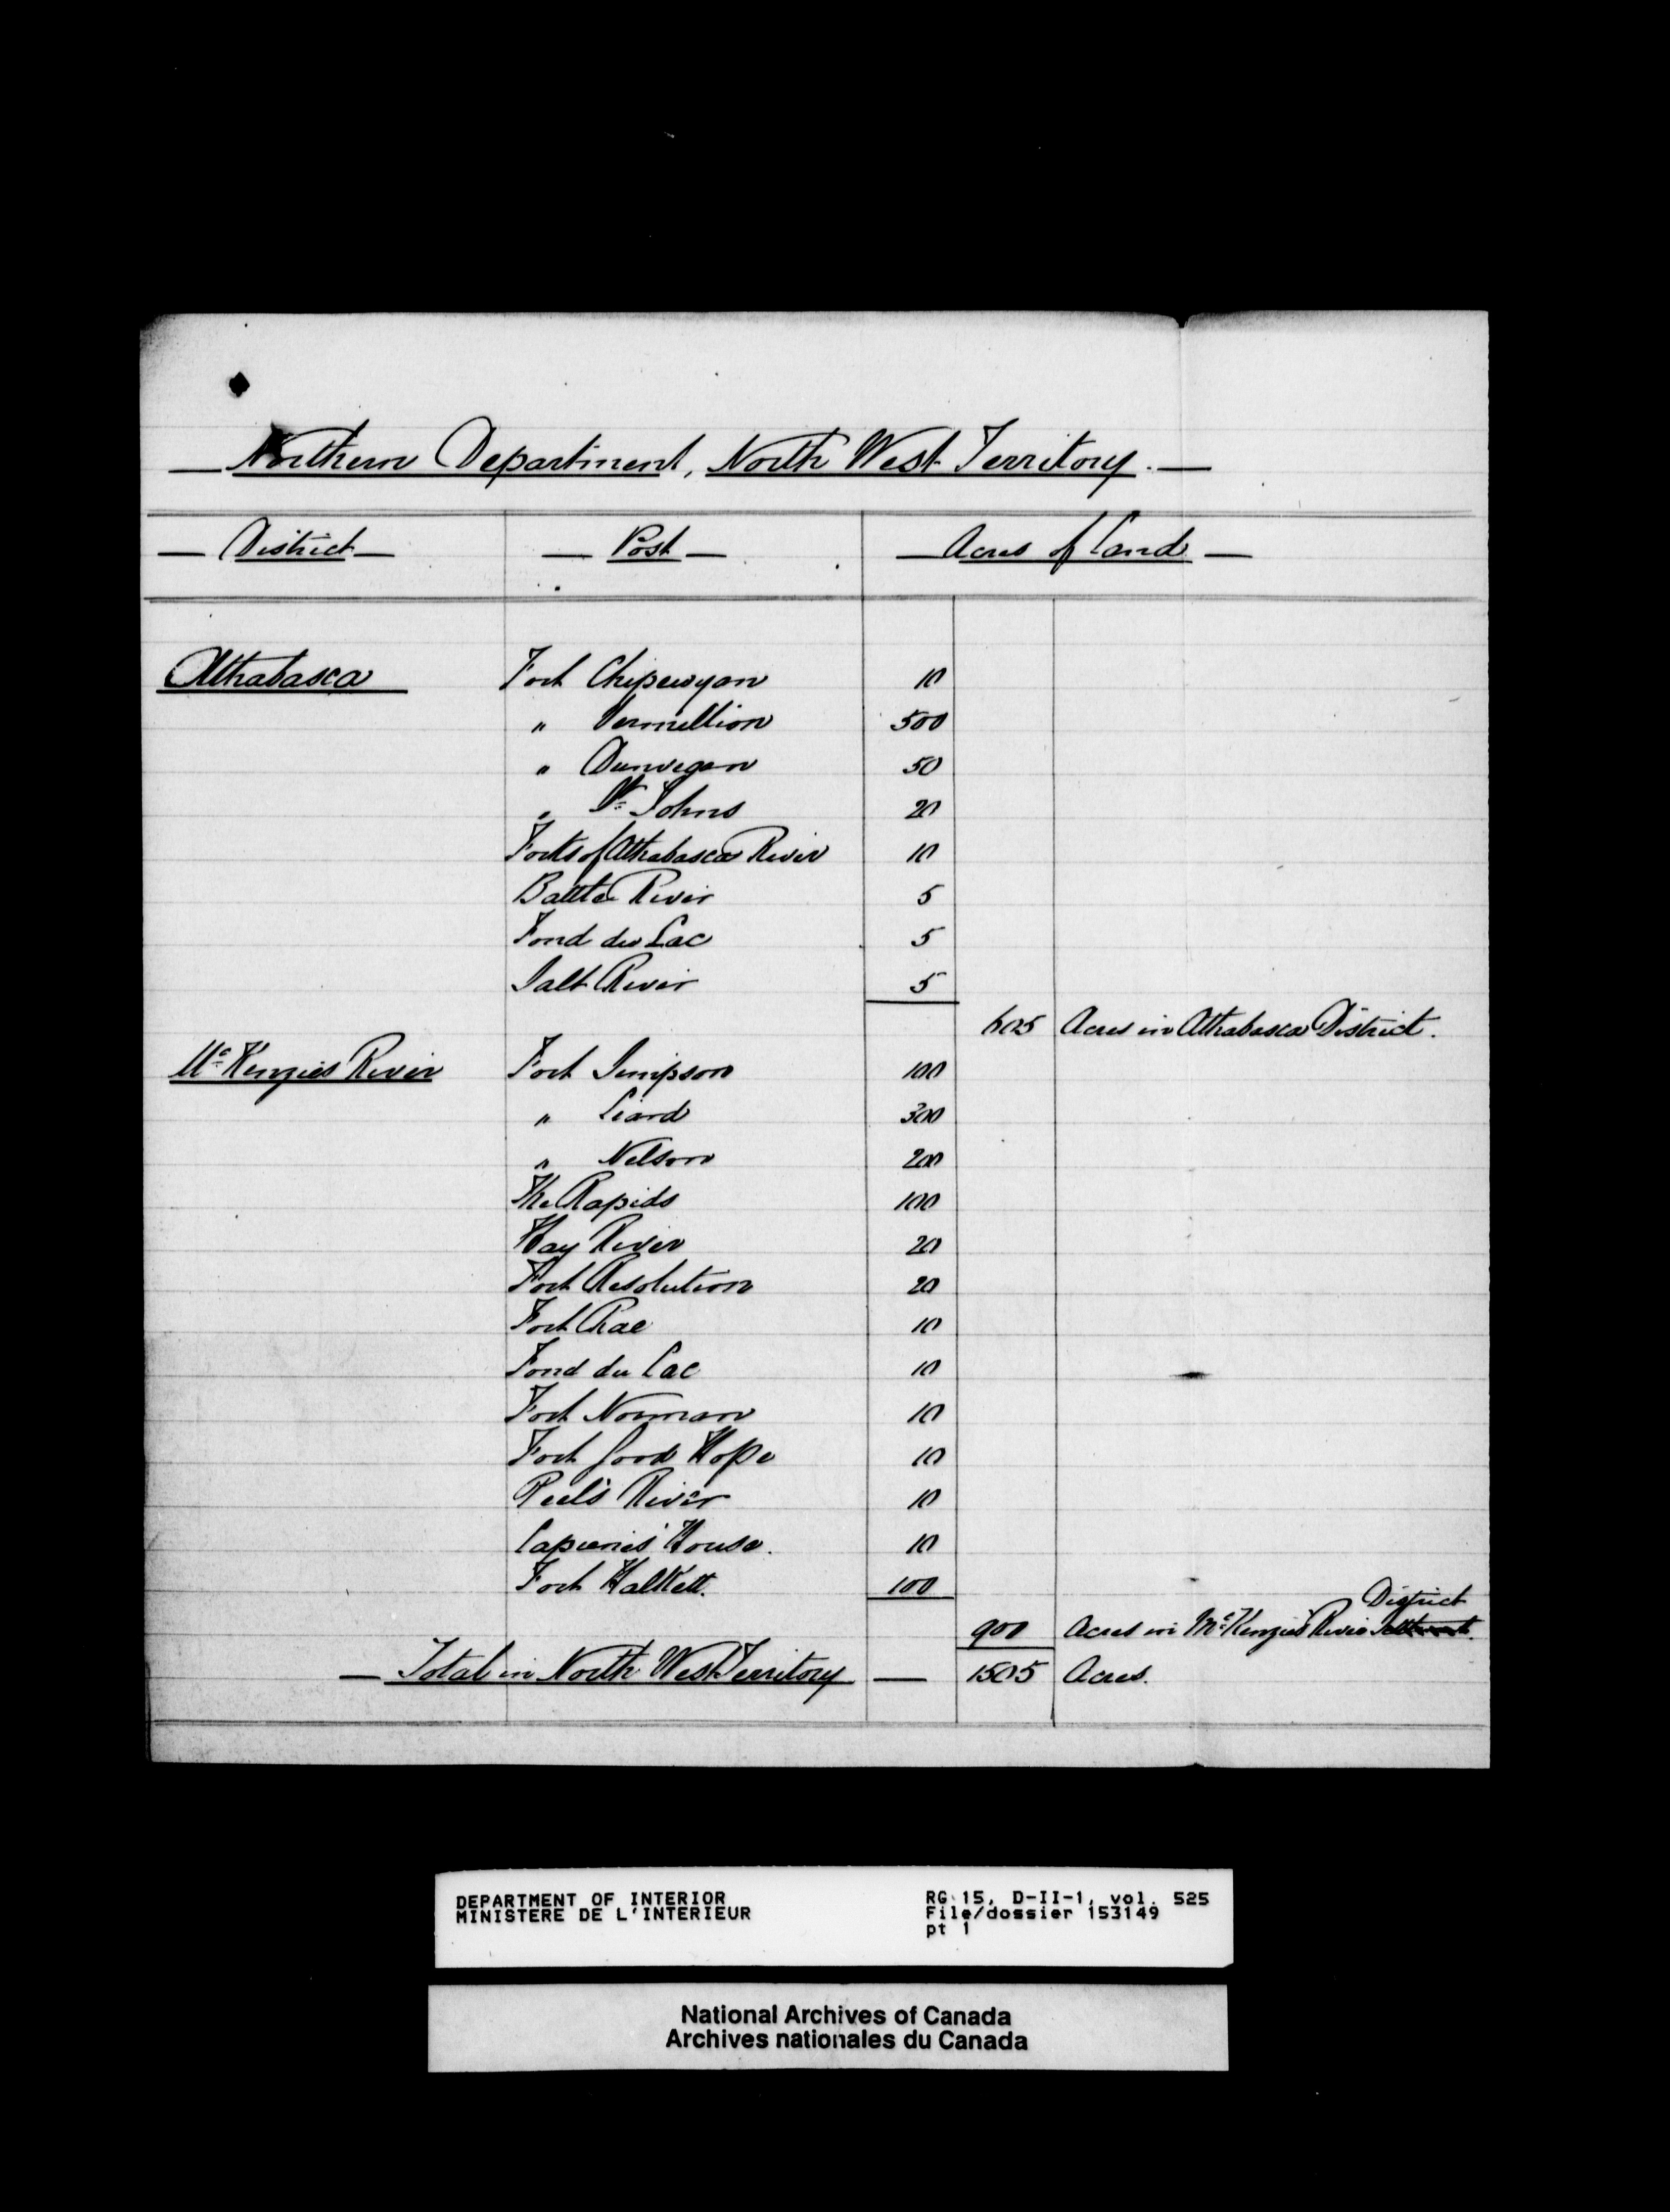 — Northern Department, North West Territory. —
— District — — Post — — Acres of Land —
Athabasca Fort Chipewyan 10
" Vermillion 500
" Dunvegan 50
" St. Johns 20
Forks of Athabasca River 10
Battle River 5
Fond du Lac 5
Salt River 5
605 Acres in Athabasca District.
McKenzies River Fort Simpson 100
" Liard 300
" Nelson 200
The Rapids 100
Hay River 20
Fort Resolution 20
Fort Rae 10
Fond du Lac 10
Fort Norman 10
Fort Good Hope 10
Peel's River 10
Lapierres' House. 10
Fort Halkett. 100
District
900 Acres in McKenzie's River
— Total in North West Territory — 1505 Acres.
DEPARTMENT OF INTERIOR RG 15, D-II-1, vol. 525
MINISTERE DE L'INTERIEUR File/dossier 153149
pt 1
National Archives of Canada
Archives nationales du Canada